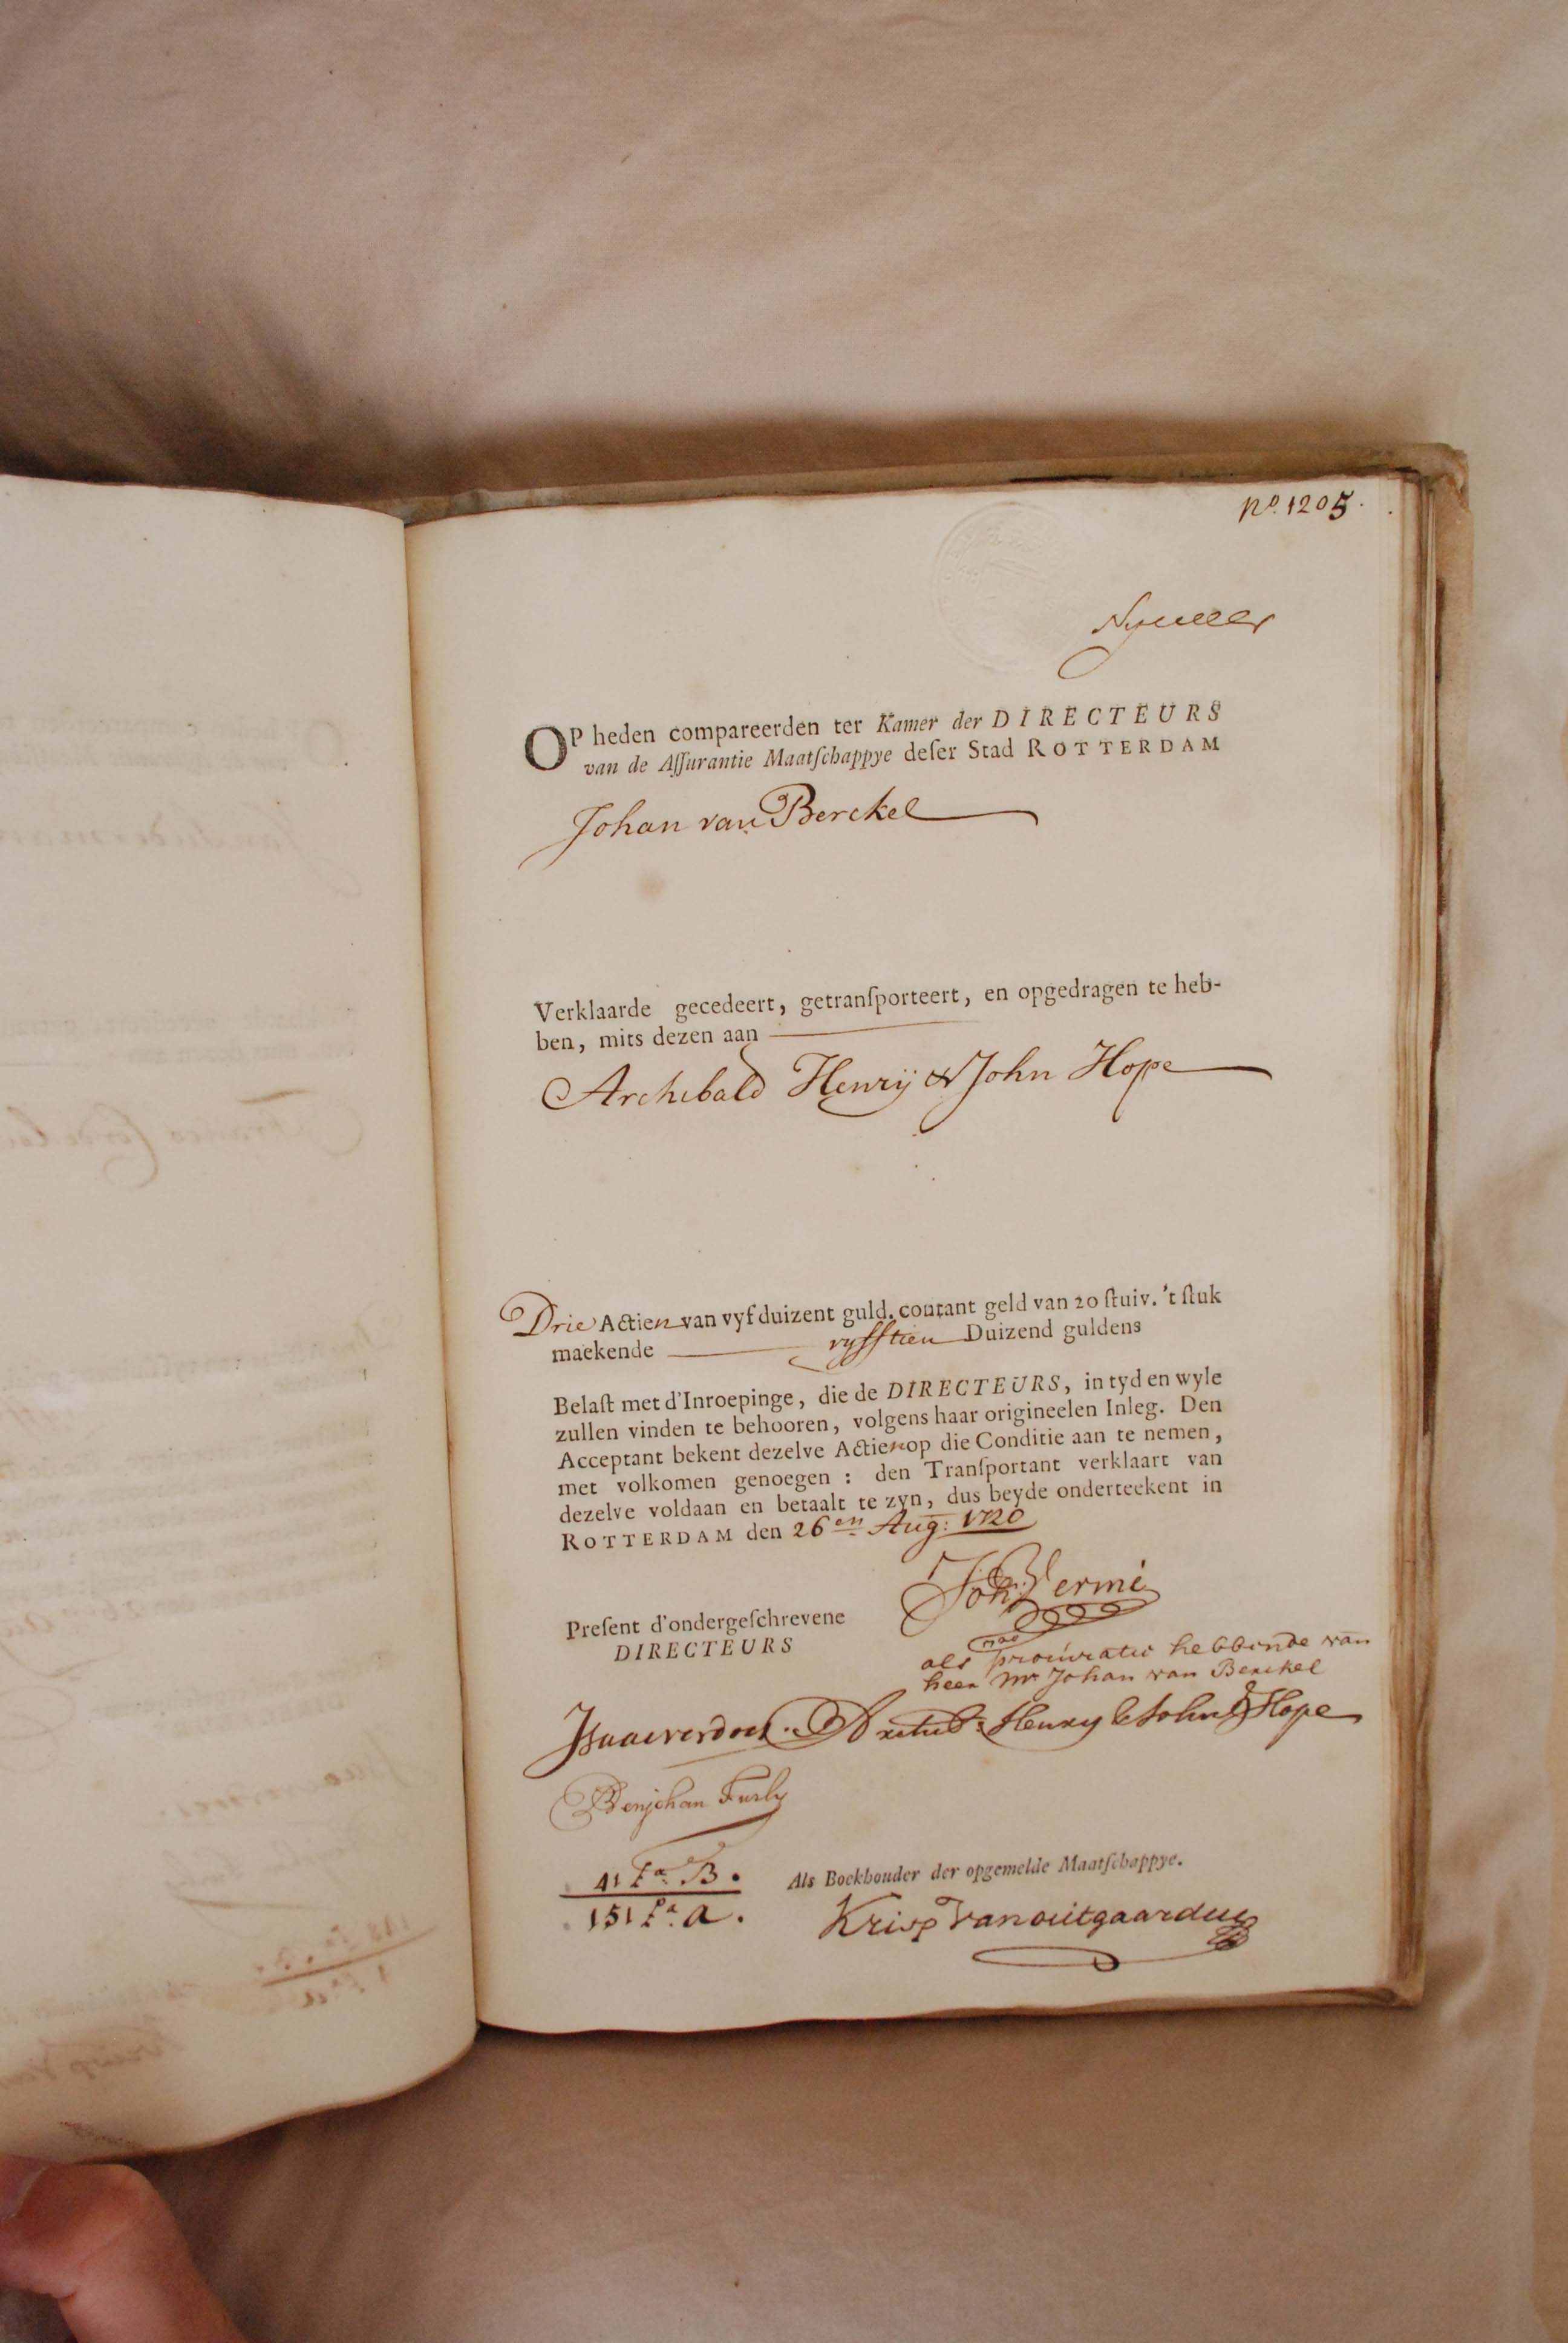 No. 1205.
OP heden compareerden ter Kamer der DIRECTEURS
van de Aſſurantie Maatſchappye deſer Stad ROTTERDAM
Johan van Berckel
Verklaarde gecedeert, getranſporteert, en opgedragen te heb-
ben, mits dezen aan
Archibald Henrij & John Hope
Drie Actien van vyf duizent guld. courant geld van 20 ſtuiv. 't ſtuk
maekende vyfftien Duizend guldens
Belaſt met d'Inroepinge, die de DIRECTEURS, in tyd en wyle
zullen vinden te behooren, volgens haar origineelen Inleg. Den
Acceptant bekent dezelve Actien op die Conditie aan te nemen,
met volkomen genoegen : den Tranſportant verklaart van
dezelve voldaan en betaalt te zyn, dus beyde onderteekent in
ROTTERDAM den 26en Aug: 1720
Preſent d'ondergeſchrevene
DIRECTEURS
als procuratie hebbende van
heer Mr Johan van Berckel
Henry & John Hope
Benjohan Furly
41 fo. B.
151 fo. a.
Als Boekhouder der opgemelde Maatſchappye.